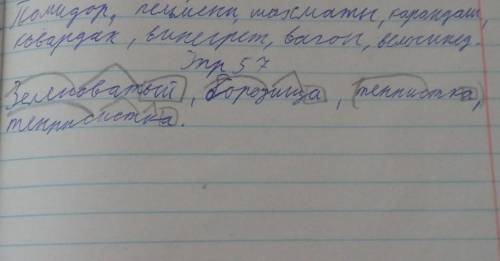 Помидор, пельмени, шахматы, карандаш,
кавардак, винегрет, вагон, велосипед.
Упр 57
Зеленоватый, бородища, теннистка,
теннисистка.